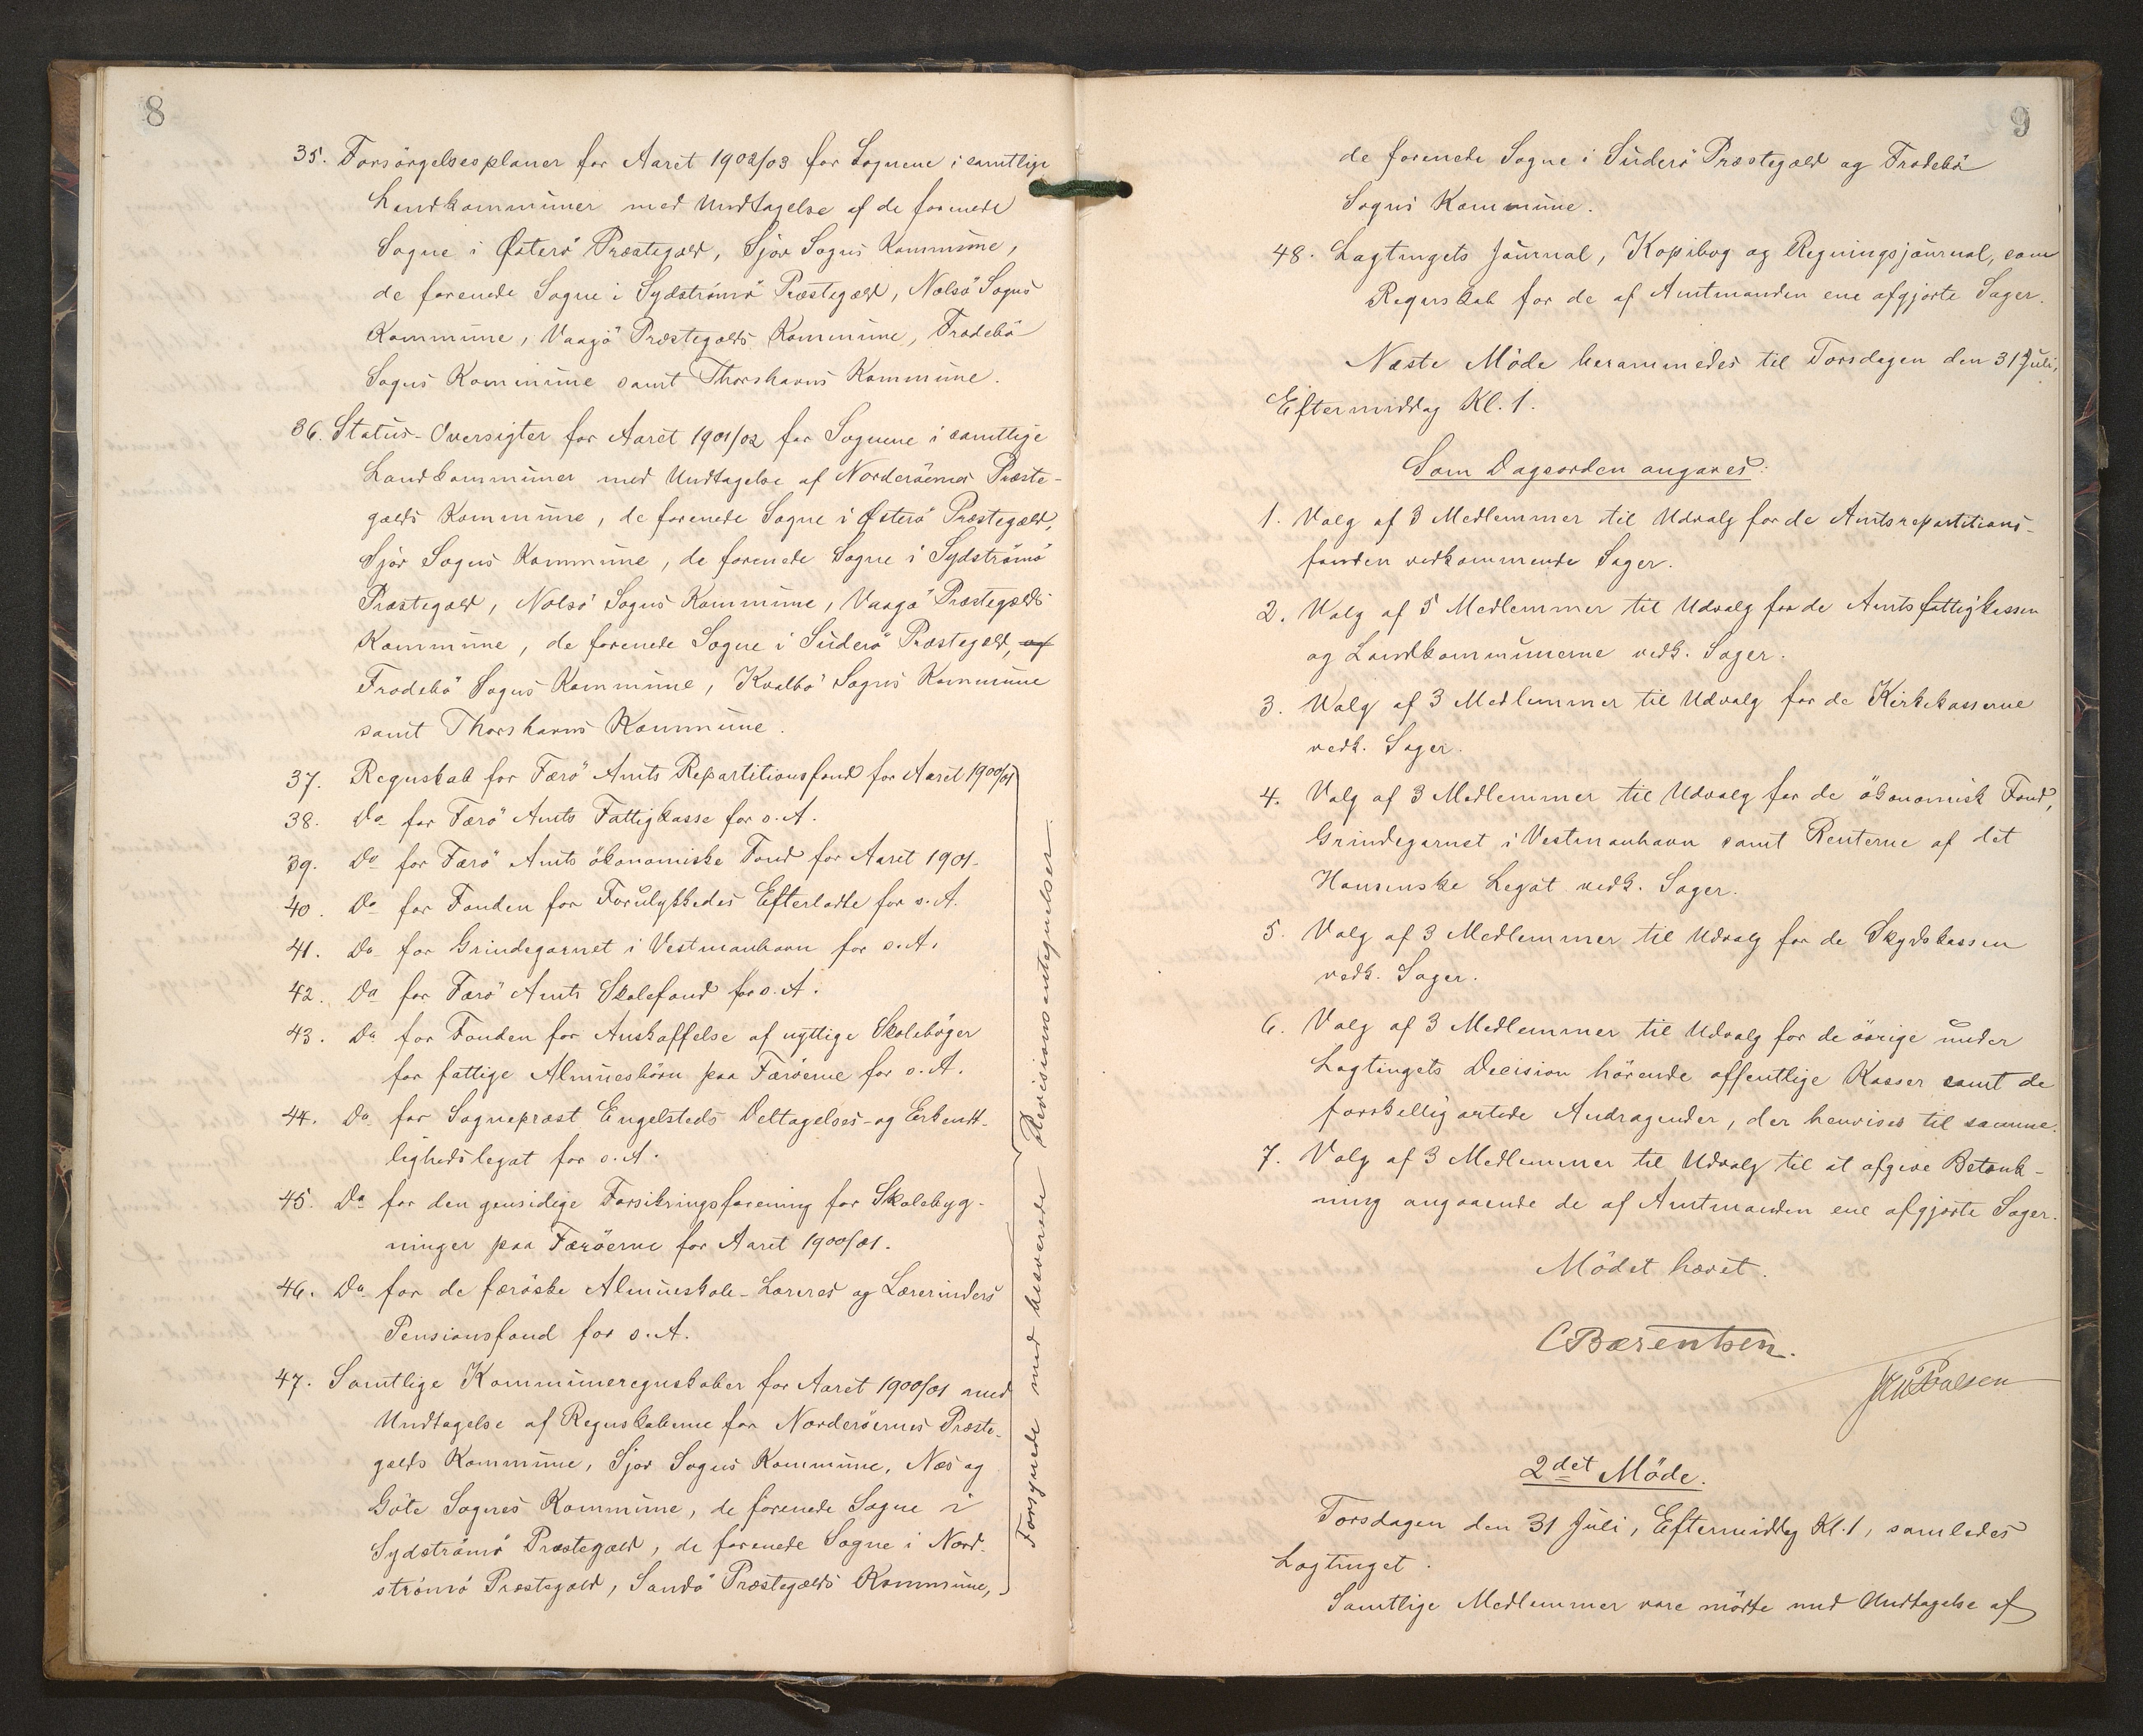 8
35. Forsörgelsesplaner for Aaret 1902/03 for Sognene i samtlige
Landkommuner med Undtagelse af de forenede
Sogne i Østerö Præstegæld, Sjov Sogns Kommune,
de forenede Sogne i Sydströmö Præstegæld, Nolsö Sogns
Kommune, Vaagö Præstegælds Kommune, Frodebö
Sogns Kommune samt Thorshavns Kommune.
36. Status-Oversigter for Aaret 1901/02 for Sognene i samtlige
Landkommuner med Undtagelse af Norderöernes Præste-
gælds Kommune, de forenede Sogne i Østerö Præstegæld,
Sjov Sogns Kommune, de forenede Sogne i Sydströmö
Præstegæld, Nolsö Sogns Kommune, Vaagö Præstegælds
Kommune, de forenede Sogne i Suderö Præstegæld, og
Frodebö Sogns Kommune, Kvalbö Sogns Kommune
samt Thorshavns Kommune.
37. Regnskab for Færö Amts Repartitionsfond for Aaret 1900/01
38. Do for Færö Amts Fattigkasse for s. A.
39. Do for Færö Amts ökonomiske Fond for Aaret 1901.
40. Do for Fonden for Forulykkedes Efterladte for s. A.
41. Do for Grindegarnet i Vestmanhavn for s. A.
42. Do for Færö Amts Skolefond for s. A.
43. Do for Fonden for Anskaffelse af nyttige Skoleböger
for fattige Almuesbörn paa Færöerne for s. A.
44. Do for Sognepræst Engelsteds Deltagelses- og Erkendt-
lighedslegat for s. A.
45. Do for den gensidige Forsikringsforening for Skolebyg-
ninger paa Færöerne for Aaret 1900/01.
46. Do for de færöske Almueskole-Læreres og Lærerinders
Pensionsfond for s. A.
47. Samtlige Kommuneregnskaber for Aaret 1900/01 med
Undtagelse af Regnskaberne for Norderöernes Præste-
gælds Kommune, Sjov Sogns Kommune, Næs og
Göte Sognes Kommune, de forenede Sogne i
Sydströmö Præstegæld, de forenede Sogne i Nord-
strömö Præstegæld, Sandö Præstegælds Kommune,
Forsynede med besvarede Revisionsantegnelser.
9
de forenede Sogne i Suderö Præstegæld og Frodebö
Sogns Kommune.
48. Lagtingets Journal, Kopibog og Regningsjournal, som
Regnskab for de af Amtmanden ene afgjorte Sager.
Næste Möde berammedes til Torsdagen den 31 Juli,
Eftermiddag Kl. 1.
Som Dagsorden angaves:
1. Valg af 3 Medlemmer til Udvalg for de Amtsrepartitions-
fonden vedkommende Sager.
2. Valg af 5 Medlemmer til Udvalg for de Amtsfattigkassen
og Landkommunerne vedk. Sager.
3. Valg af 3 Medlemmer til Udvalg for de Kirkekasserne
vedk. Sager.
4. Valg af 3 Medlemmer til Udvalg for de ökonomisk Fond,
Grindegarnet i Vestmanhavn samt Renterne af det
Hansenske Legat vedk. Sager.
5. Valg af 3 Medlemmer til Udvalg for de Skydskassen
vedk. Sager.
6. Valg af 3 Medlemmer til Udvalg for de övrige under
Lagtingets Decision hörende offentlige Kasser samt de
forskelligartede Andragender, der henvises til samme.
7. Valg af 3 Medlemmer til Udvalg til at afgive Betænk-
ning angaaende de af Amtmanden ene afgjorte Sager.
Mödet hævet.
C Bærentsen.
Poulsen
2det Möde.
Torsdagen den 31 Juli, Eftermiddag Kl. 1, samledes
Lagtinget.
Samtlige Medlemmer vare mödte med Undtagelse af